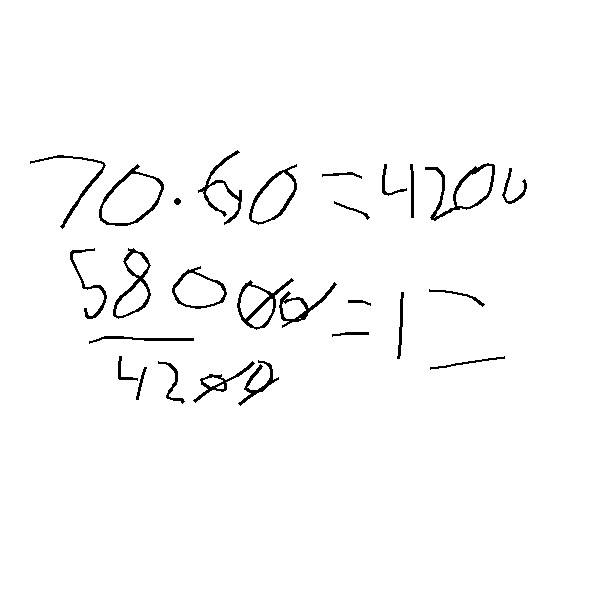 70.60=4200
58000/4200=1